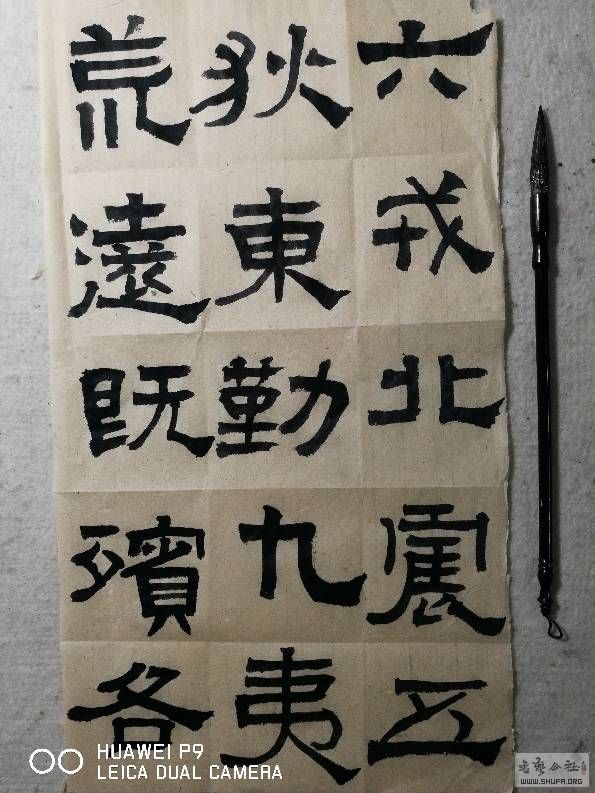 六戎北震五
狄東勤九夷
荒遠既殯各
HUAWEI P9
LEICA DUAL CAMERA
书艺公社
WWW.SHUFA.ORG